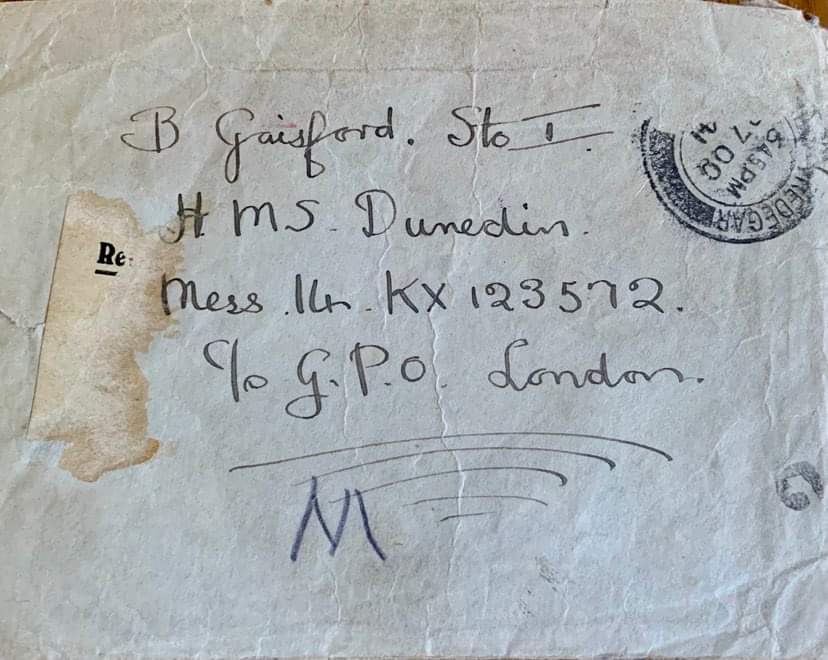 B Gaisford. Sto I.
H.M.S. Dunedin.
Mess 14. KX 123572.
c/o G.P.O. London.
Re:
M
TREDEGAR
545PM
OC
41